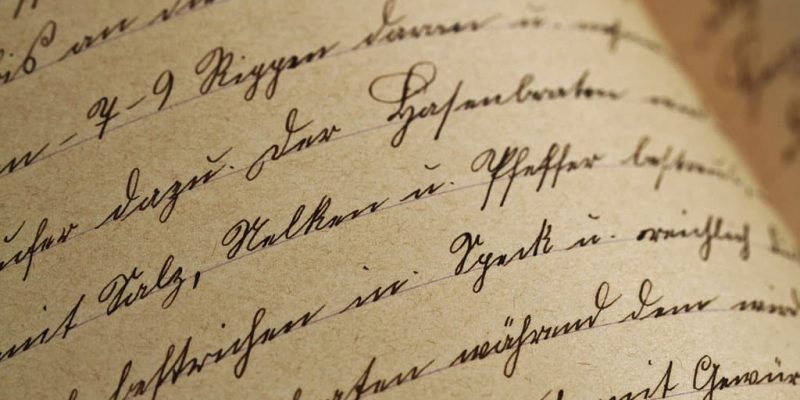 bis an die
n - 7-9 Rippen daran u.
ufer dazu. Der Hasenbraten
mit Salz, Nelken u. Pfeffer bestreu
bestrichen in Speck u. reichlich
braten während dem wird
mit Gewür